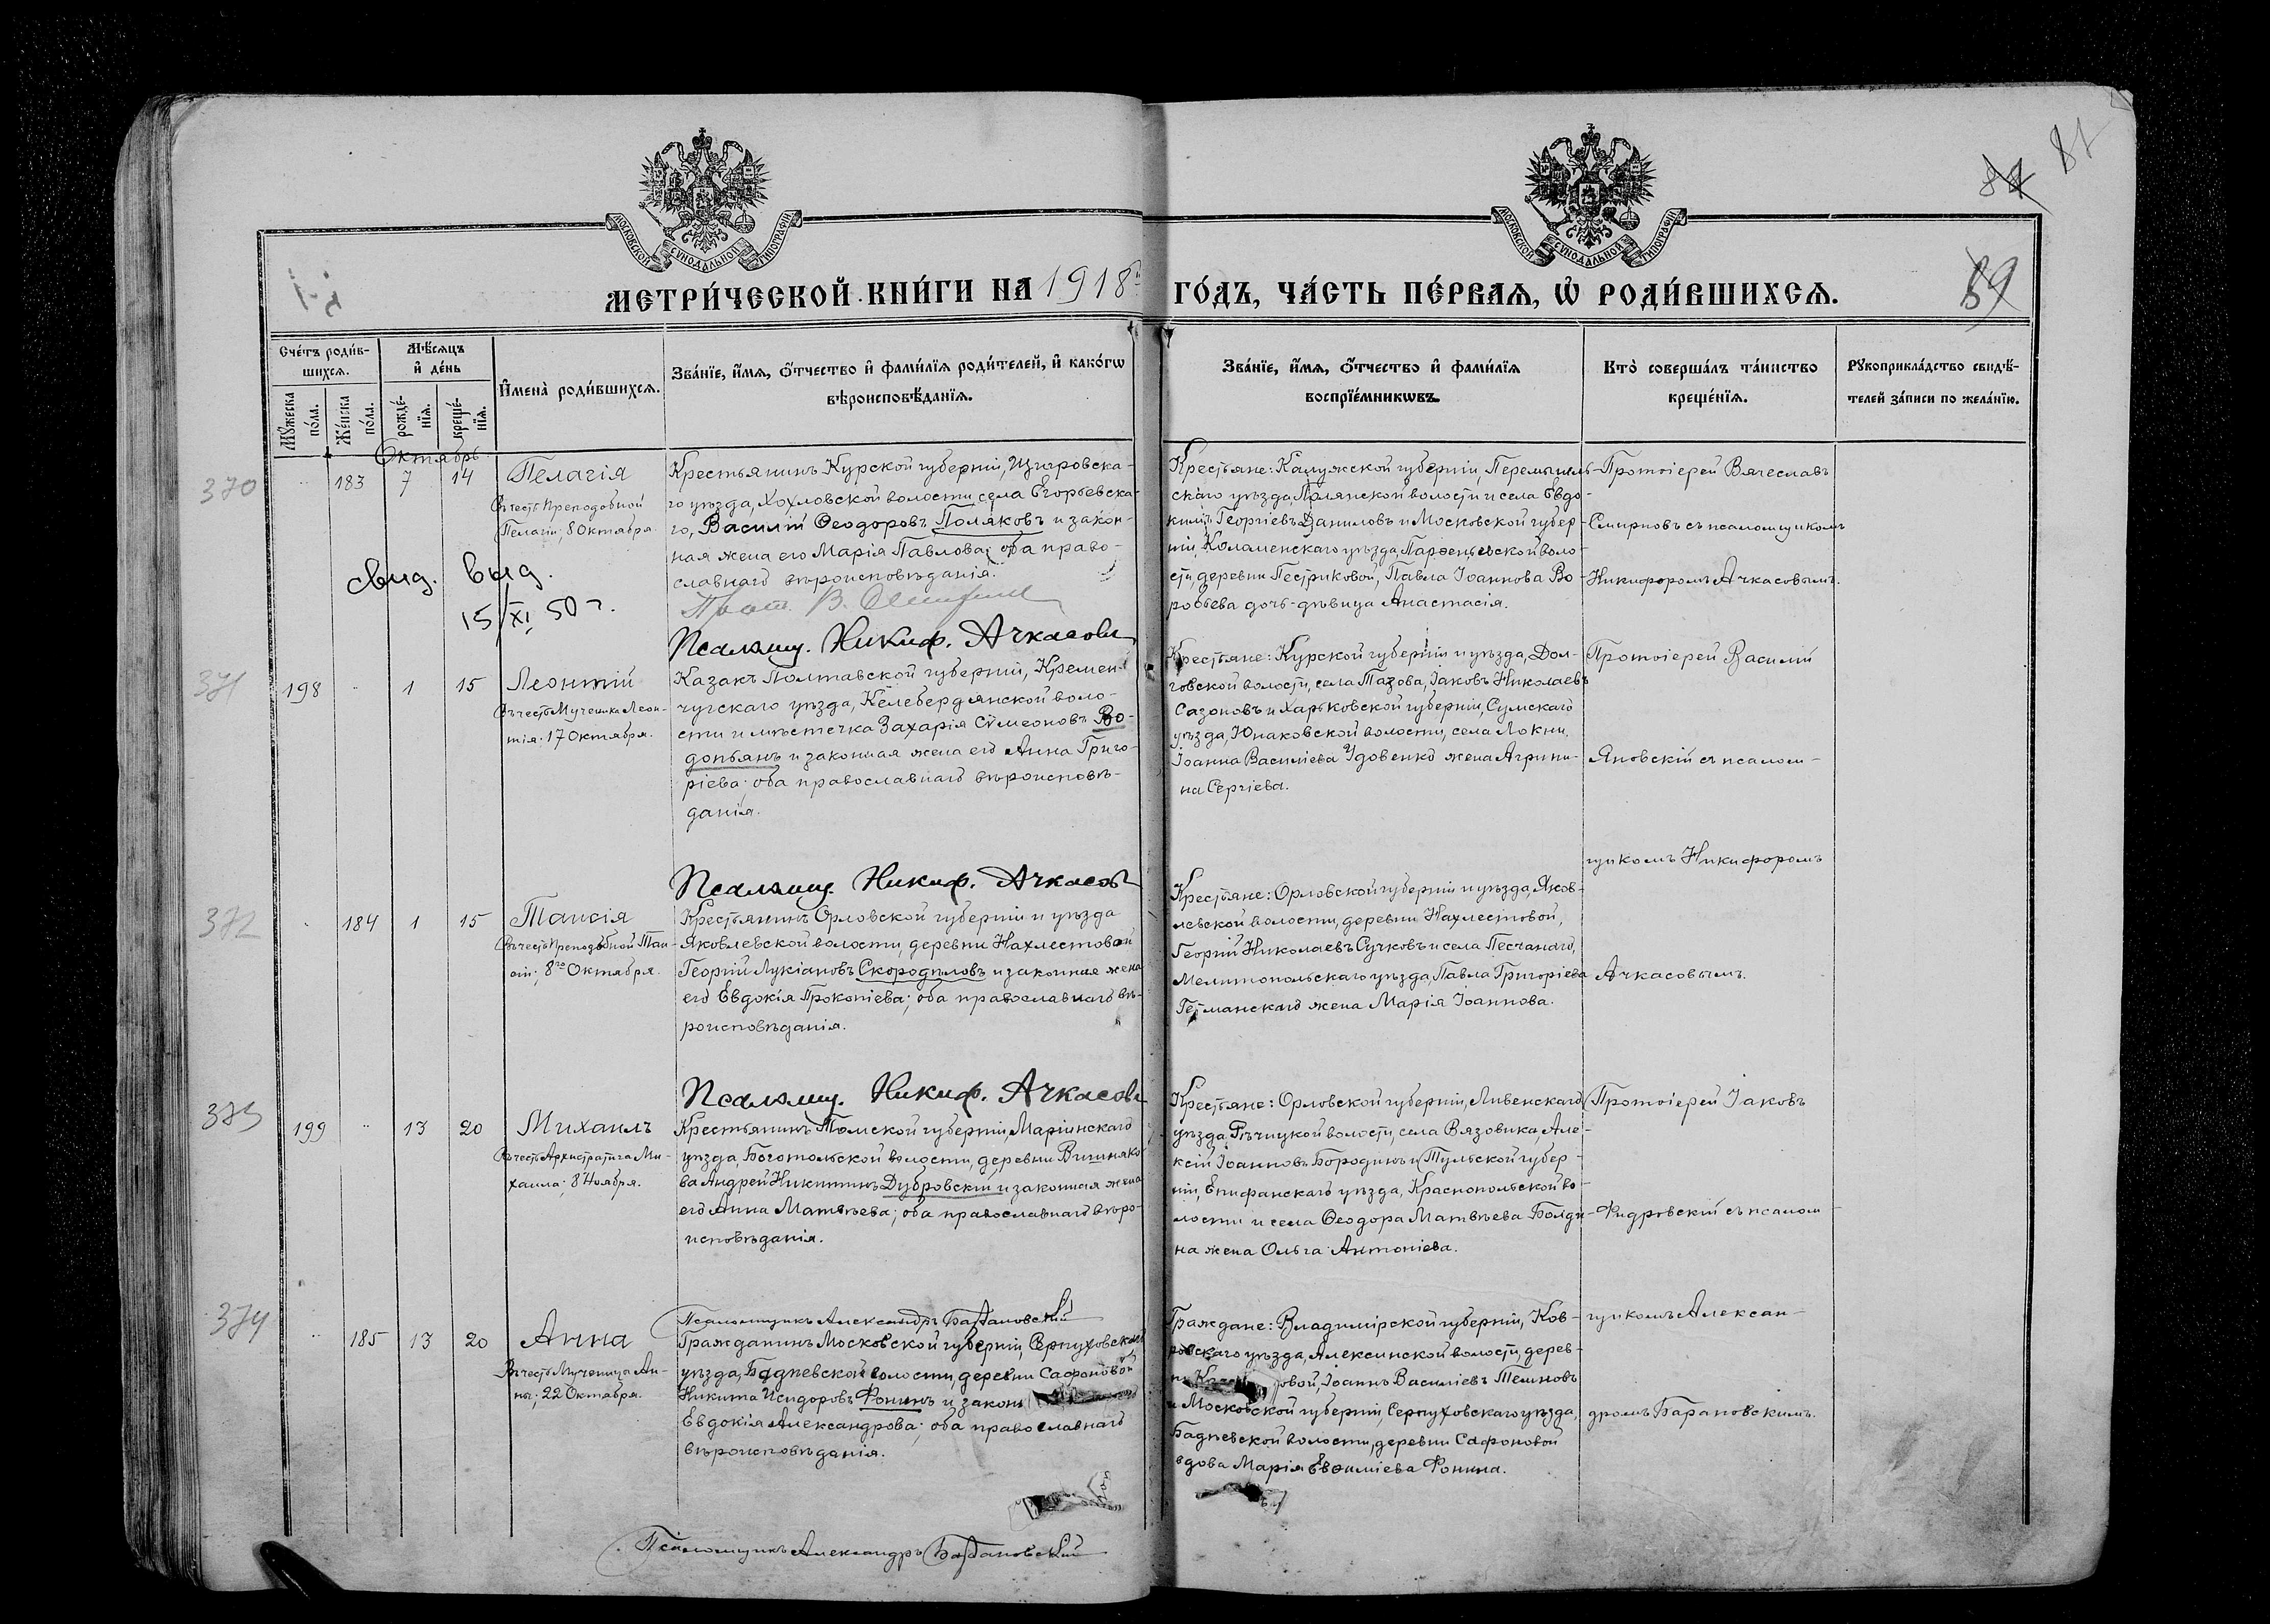 МОСКОВСКОЙ СѴНОДАЛЬНОЙ ТИПОГРАФІИ
МОСКОВСКОЙ СѴНОДАЛЬНОЙ ТИПОГРАФІИ
87
89
МЕТРИ́ЧЕСКОЙ КНИ́ГИ НА 1918 ГО́ДЪ, ЧА́СТЬ ПЕ́РВАЯ, Ѡ РОДИ́ВШИХСЯ.
Сче́тъ роди́в-
шихся.
Мꙋ́жеска по́ла.
Же́нска по́ла.
Мѣ́сяцъ и де́нь
рожде́-нїя.
креще́-нїя.
Имена̀ роди́вшихся.
Зва́нїе, и́мя, о́тчество и фами́лїя роди́телей, и како́гѡ
вѣроисповѣ́данїя.
Зва́нїе, и́мя, о́тчество и фами́лїя
воспрїе́мникѡвъ.
Кто̀ соверша́лъ та́инство
креще́нїя.
Рꙋкоприкла́дство свидѣ́-
телей за́писи по жела́нїю.
Октябрь
370
183 7 14
Пелагія
Въ честь Преподобной
Пелагіи, 8 Октября
Крестьянинъ Курской губерніи, Щигровска-
го уѣзда, Хохловской волости, села Егорьевска-
го, Василій Ѳеодоровъ Поляковъ и закон-
ная жена его Марія Павлова; оба право-
славнаго вѣроисповѣданія.
Прот. В. Смирнов
Псаломщ. Никиф. Ачкасовъ
свид. выд.
15/XI 50 г.
Крестьяне: Калужской губерніи, Перемышль-
скаго уѣзда, волости и села Евдо-
кимъ Георгіевъ Даниловъ и Московской губер-
ніи, Коломенскаго уѣзда, Парѳеньевской воло-
сти, деревни Пестриковой, Павла Іоаннова Во-
робьева дочь-дѣвица Анастасія.
Протоіерей Вячеславъ
Смирновъ съ псаломщикомъ
Никифоромъ Ачкасовымъ.
371
198 1 15
Леонтій
Въ честь Мученика Леон-
тія. 17 Октября.
Казакъ Полтавской губерніи, Кремен-
чугскаго уѣзда, Келебердянской воло-
сти и мѣстечка Захарія Сѵмеоновъ Во-
допьянъ и законная жена его Анна Григо-
ріева; оба православнаго вѣроисповѣ-
данія.
Псаломщ. Никиф. Ачкасовъ
Крестьяне: Курской губерніи и уѣзда, Дол-
говской волости, села Тазова, Іаковъ Николаевъ
Сазоновъ и Харьковской губерніи, Сумскаго
уѣзда, Юнаковской волости, села Локни,
Іоанна Василіева Удовенко жена Агрипи-
на Сергіева.
Протоіерей Василій
Яновскій съ псалом-
щикомъ Никифоромъ
Ачкасовымъ.
372
184 1 15
Таисія
Въ честь Преподобной Таи-
сіи; 8го Октября.
Крестьянинъ Орловской губерніи и уѣзда
Яковлевской волости, деревни Нахлестовой
Георгій Лукіановъ Скородѣловъ и законная жена
его Евдокія Прокопіева; оба православнаго вѣ-
роисповѣданія.
Псаломщ. Никиф. Ачкасовъ
Крестьяне: Орловской губерніи и уѣзда, Яков-
левской волости, деревни Нахлестовой,
Георгій Николаевъ Сучковъ и села Песчанаго,
Мелитопольскаго уѣзда, Павла Григоріева
Гетманскаго жена Марія Іоаннова.
373
199 13 20
Михаилъ
Въ честь Архистратига Ми-
хаила; 8 Ноября.
Крестьянинъ Томской губерніи, Маріинскаго
уѣзда, Боготольской волости, деревни Вишняко-
ва Андрей Никитинъ Дубровскій и законная жена
его Анна Матвѣева; оба православнаго вѣро-
исповѣданія.
Псаломщикъ Александръ
Крестьяне: Орловской губерніи, Ливенскаго
уѣзда, Рѣчицкой волости, села Вязовика, Але-
ксій Іоанновъ Бородинъ и Тульской губер-
ніи, Епифанскаго уѣзда, Краснопольской во-
лости и села Ѳеодора Матвѣева Болди-
на жена Ольга Антоніева.
Протоіерей Іаковъ
съ псалом-
щикомъ Алексан-
дромъ Барановскимъ.
374
185 13 20
Анна
Въ честь Мученицы Ан-
ны; 22 Октября.
Гражданинъ Московской губерніи, Серпуховскаго
уѣзда, Бадѣевской волости, деревни Сафоновой
Никита Исидоровъ Фонинъ и законн
Евдокія Александрова; оба православнаго
вѣроисповѣданія.
Псаломщикъ Александръ
Граждане: Владимірской губерніи, Ков-
ровскаго уѣзда, Алексинской волости, дерев-
ни ровой, Іоаннъ Василіевъ Темновъ
и Московской губерніи, Серпуховскаго уѣзда,
Бадѣевской волости, деревни Сафоновой
вдова Марія Евѳиміева Фонина.